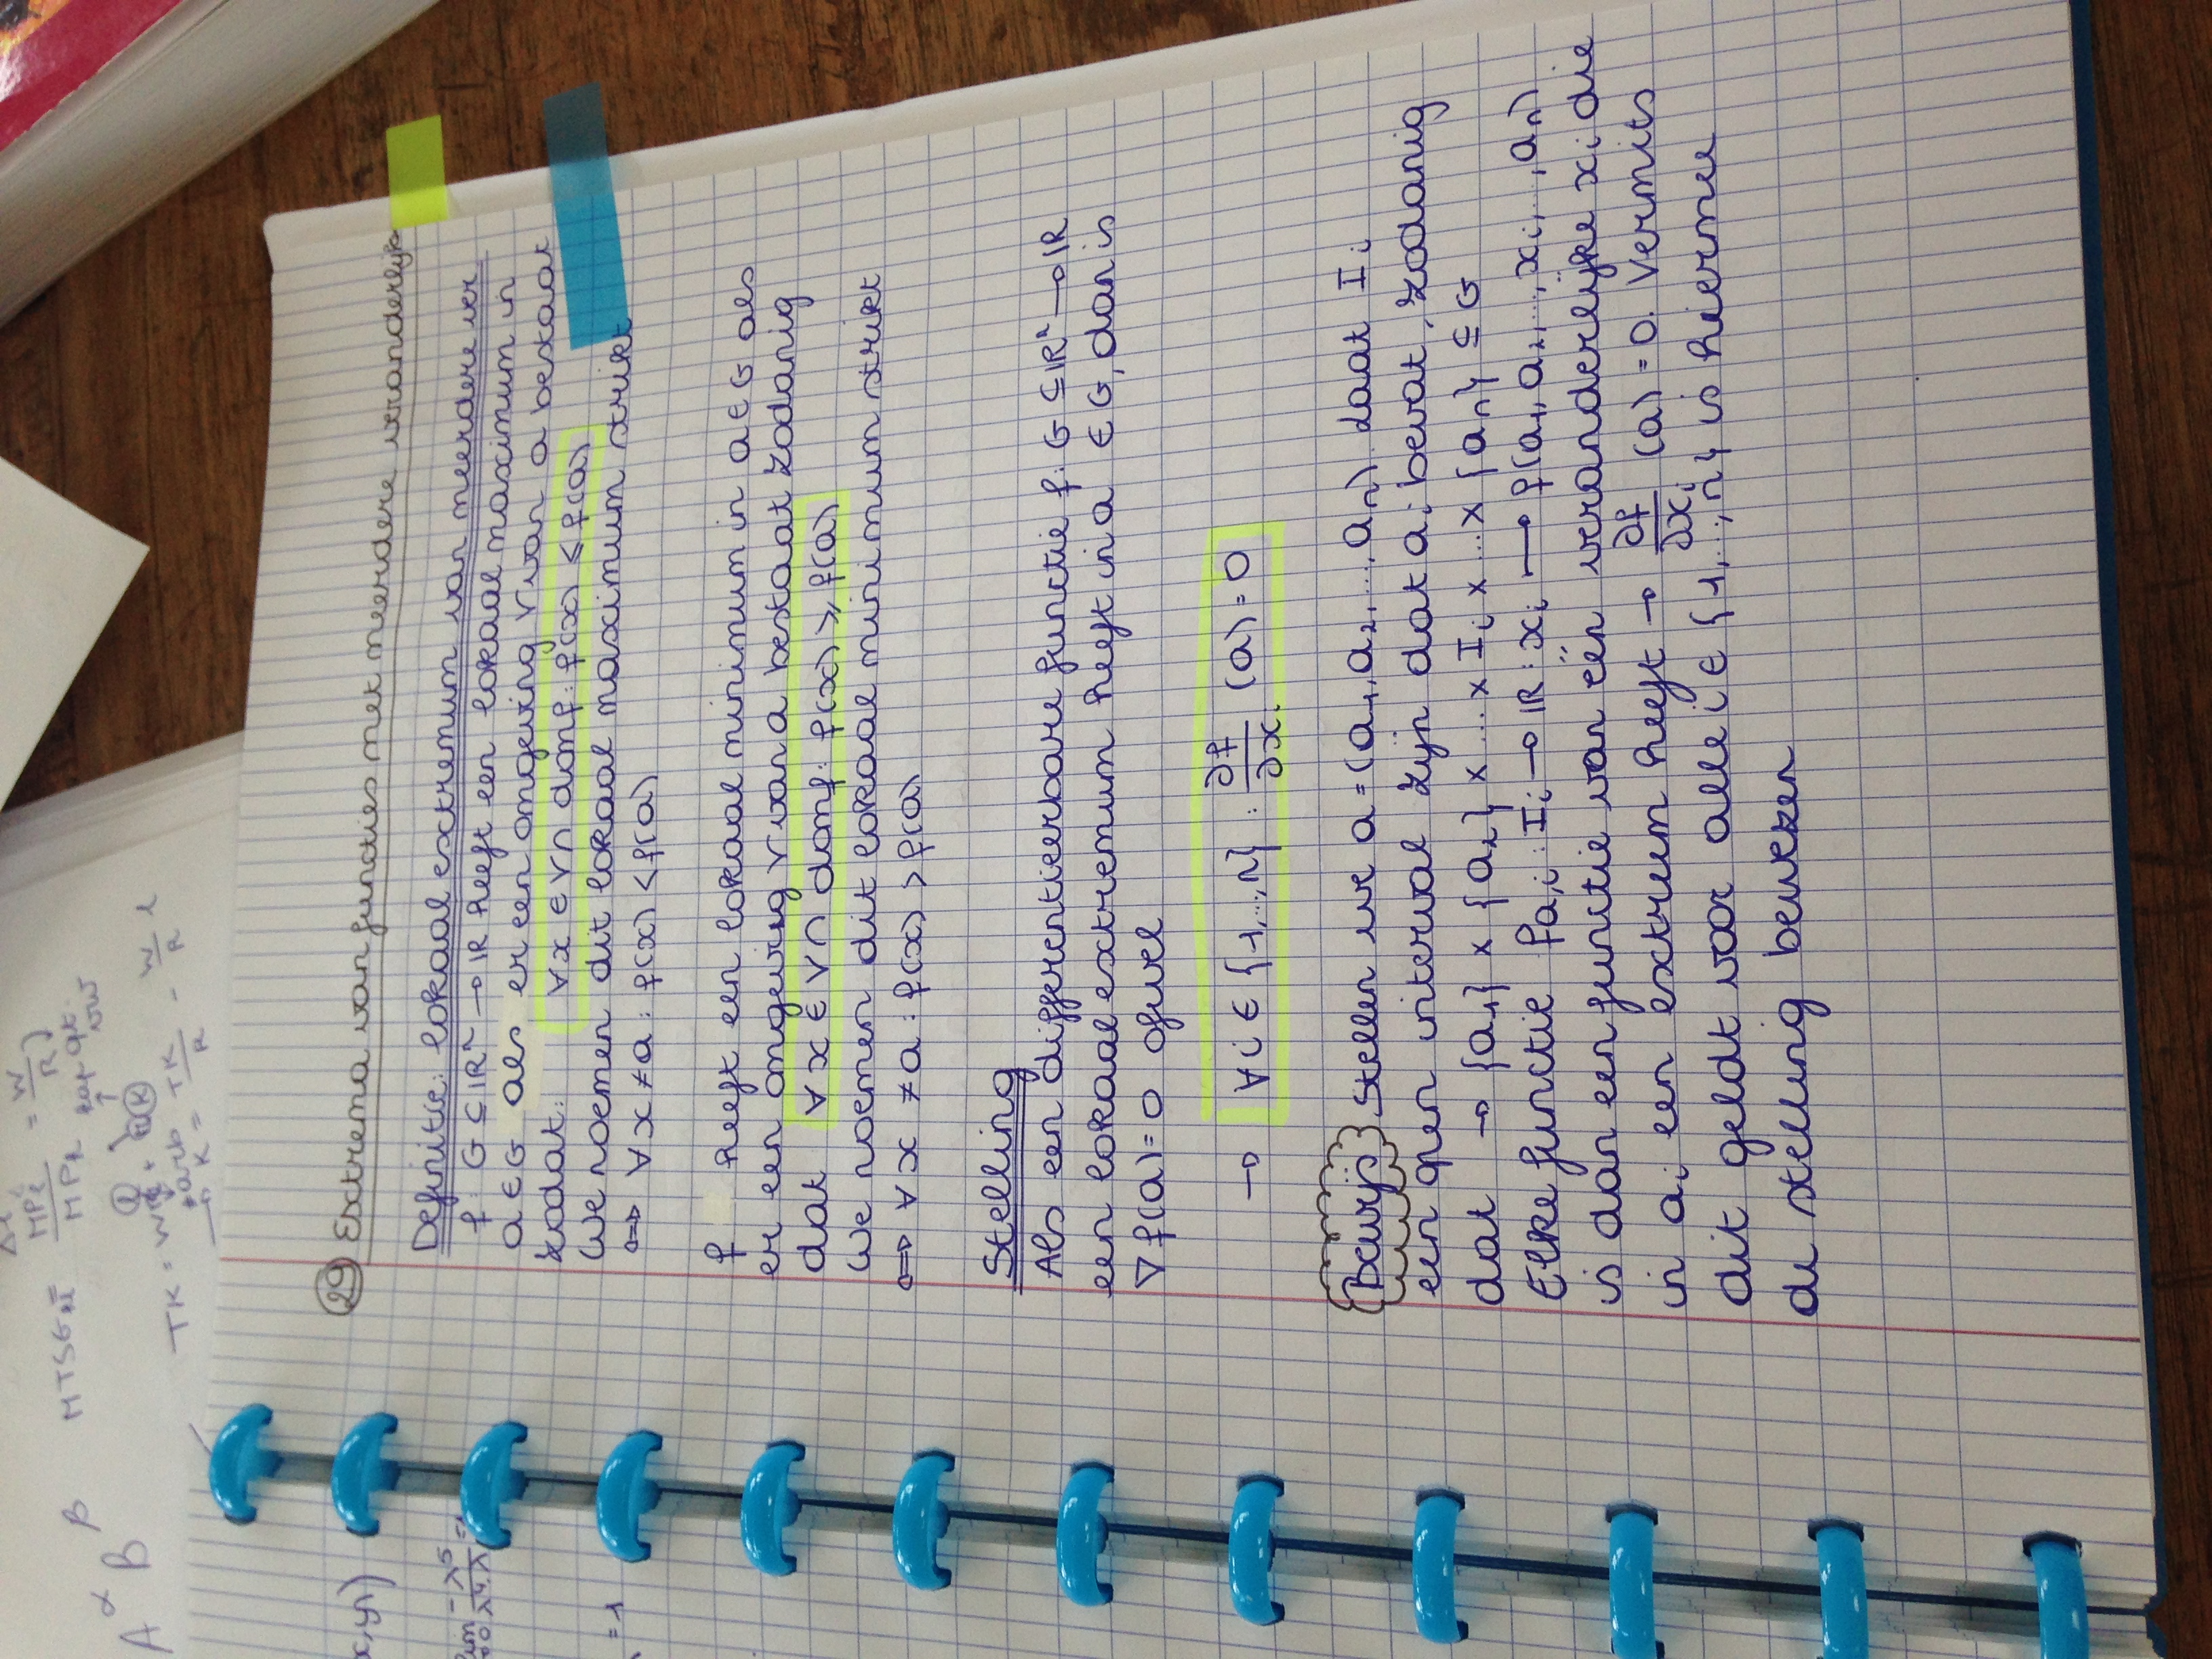 29 Extrema van functies met meerdere veranderlijk
Definitie: lokaal extremum van meerdere ver.
f: G ⊆ ℝⁿ → ℝ heeft een lokaal maximum in
a ∈ G als er een omgeving V van a bestaat
zodat: ∀x ∈ V ∩ dom f: f(x) ≤ f(a)
We noemen dit lokaal maximum strikt
⇔ ∀x ≠ a: f(x) < f(a)
f heeft een lokaal minimum in a ∈ G als
er een omgeving V van a bestaat zodanig
dat ∀x ∈ V ∩ dom f: f(x) ≥ f(a)
We noemen dit lokaal minimum strikt
⇔ ∀x ≠ a: f(x) > f(a)
Stelling
Als een differentieerbare functie f: G ⊆ ℝⁿ → ℝ
een lokaal extremum heeft in a ∈ G, dan is
∇f(a) = 0 ofwel
→ ∀i ∈ {1,...,n}: ∂f/∂x. (a) = 0
Bewijs Stellen we a = (a₁, a₂, ..., aₙ) daat Iᵢ
een open interval zijn dat aᵢ bevat, zodanig
dat → {a₁} x {a₂} x ... x Iᵢ x ... x {aₙ} ⊆ G
Elke functie fa,i: Iᵢ → ℝ: xᵢ → f(a₁, a₂, ..., xᵢ, ..., aₙ)
is dan een functie van één veranderlijke xᵢ die
in aᵢ een extreem heeft → ∂f/∂xᵢ (a) = 0. Vermits
dit geldt voor alle i ∈ {1,...,n} is hiermee
de stelling bewezen
MTSGⁿ
TK = W
A^α B^β
x,y)
= 1